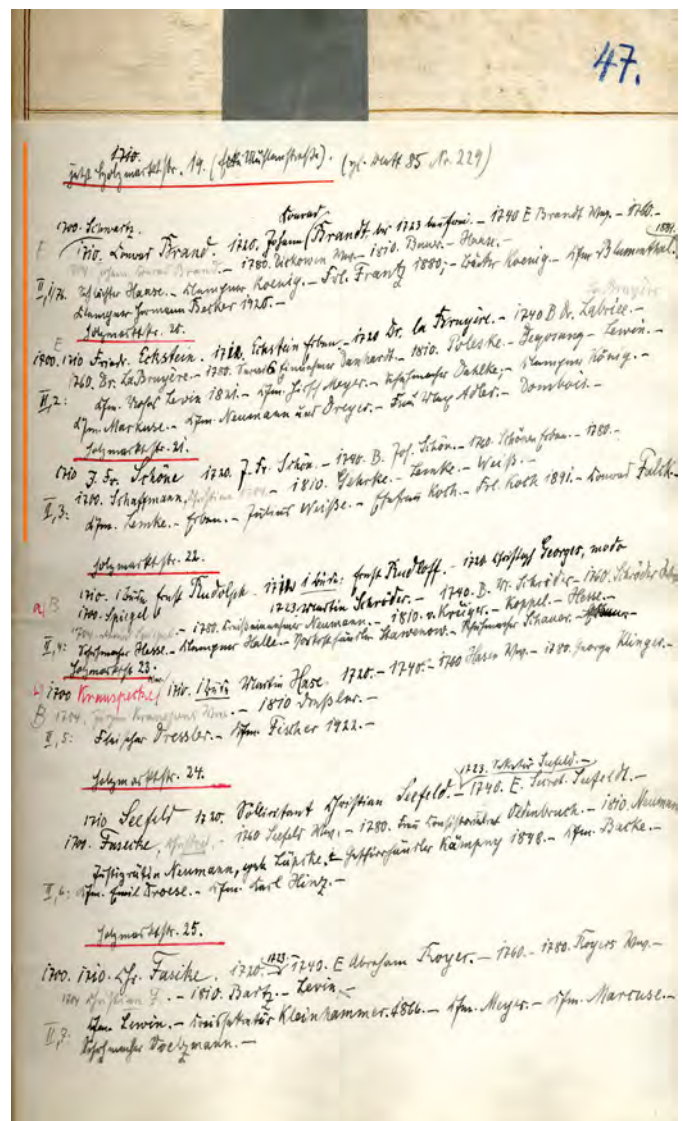 47.
1710.
jetzt Holzmarktstr. 19. (Ecke Mühlenstraße). (vgl. Blatt 85 Nr. 229)
Konrad
1700. Schwartz.
1710. Konrad Brand. 1720. Johann Brandt bis 1723 - 1740 E Brandt Wwe. - 1760. -
1704. Johann Conrad Brand. - 1780. Wwe. - 1810. Bauer. - Haase. -
1881.
II, 1/76. Schlächter Haase. - Klempner Koenig. - Frl. Frantz 1880; - Bäcker Koenig. - Kfm. Blumenthal.
Klempner Hermann Becker 1925. -
la Bruyère
Holzmarktstr. 20.
E
1700. 1710 Friedr. Eckstein. 1712. Eckstein Erben. - 1720 Dr. la Bruyère. - 1740 B Dr. Labriee. -
1760. Dr. LaBruyère. - 1780. - 1810. Poleske. - Lewin. -
II, 2: Kfm. Levin 1821. - Kfm. Hirsch Meyer. - Schuhmacher Dahlke; - Klempner König. -
Kfm. Markuse. - Kfm. Neumann und Dreyer. - Frau Wwe Adler. - Dombois. -
Holzmarktstr. 21.
1710 J. Fr. Schöne 1720. J. Fr. Schön. - 1740. B. Joh. Schön. - 1760. Schönen Erben. - 1780. -
1700. Schaffmann, Christian 1704. - 1810. Gehrke. - Lemke. - Weiß. -
II, 3: Kfm. Lemke. - Erben. - Julius Weiße. - Ehefrau Koth. - Frl. Koth 1891. - Konrad Falck. -
Holzmarktstr. 22.
1710. 1 Bude Ernst Rudolph. 1712 1 Bude: Ernst Rudloff. - 1720 Christoph Georges, modo
a) B 1700. Spiegel 1723. Martin Schröder. - 1740. B. M. Schröder. - 1760. Schröder
1704. Spiegel. - 1780. Kreiseinnehmer Neumann. - 1810. v. Kroüger. - Koppel. - Hesse. -
II, 4: Schuhmacher Hesse. - Klempner Halle. - Vorkosthändler Stawenow. - Schuhmacher Schauer. -
Holzmarktstr. 23.
b) 1700 1710. 1 Bude Martin Hase. 1720. - 1740. - 1760 Hasen Wwe. - 1780. George Klinger. -
B 1704. Wwe. - 1810 Dreßler. -
II, 5: Fleischer Dressler. - Kfm. Fischer 1922. -
Holzmarktstr. 24.
1723. Sekretär Seefeld. -
1710 Seefeld 1720. Sollicitant Christian Seefeld. - 1740. E. Seefeldt. -
1700. Fusecke, Christian. - 1760 Seefelds Wwe. - 1780. Frau Consistorialrat Oldenbruch. - 1810. Neumann
Justizrätin Neumann, geb. Lüpcke. - Geschirrhändler Kämpny 1848. - Kfm. Backe. -
II, 6: Kfm. Emil Droese. - Kfm. Karl Hinz. -
Holzmarktstr. 25.
1723.
1700. 1710. Chr. Fusike. 1720. - 1740. E Abraham Troyer. - 1760. - 1780. Troyers Wwe. -
1704 Christian F. - 1810. Bartz. - Levin. -
II, 7: Kfm. Lewin. - Kreissekretär Kleinhammer. 1866. - Kfm. Meyer. - Kfm. Marcuse. -
Schuhmacher Voeltzmann. -